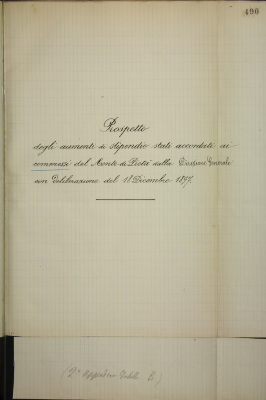 490
Prospetto
degli aumenti di stipendio stati accordati ai
commessi del Monte di Pietà dalla Direzione Generale
con Deliberazione del 18 Dicembre 1897.
(2° B)